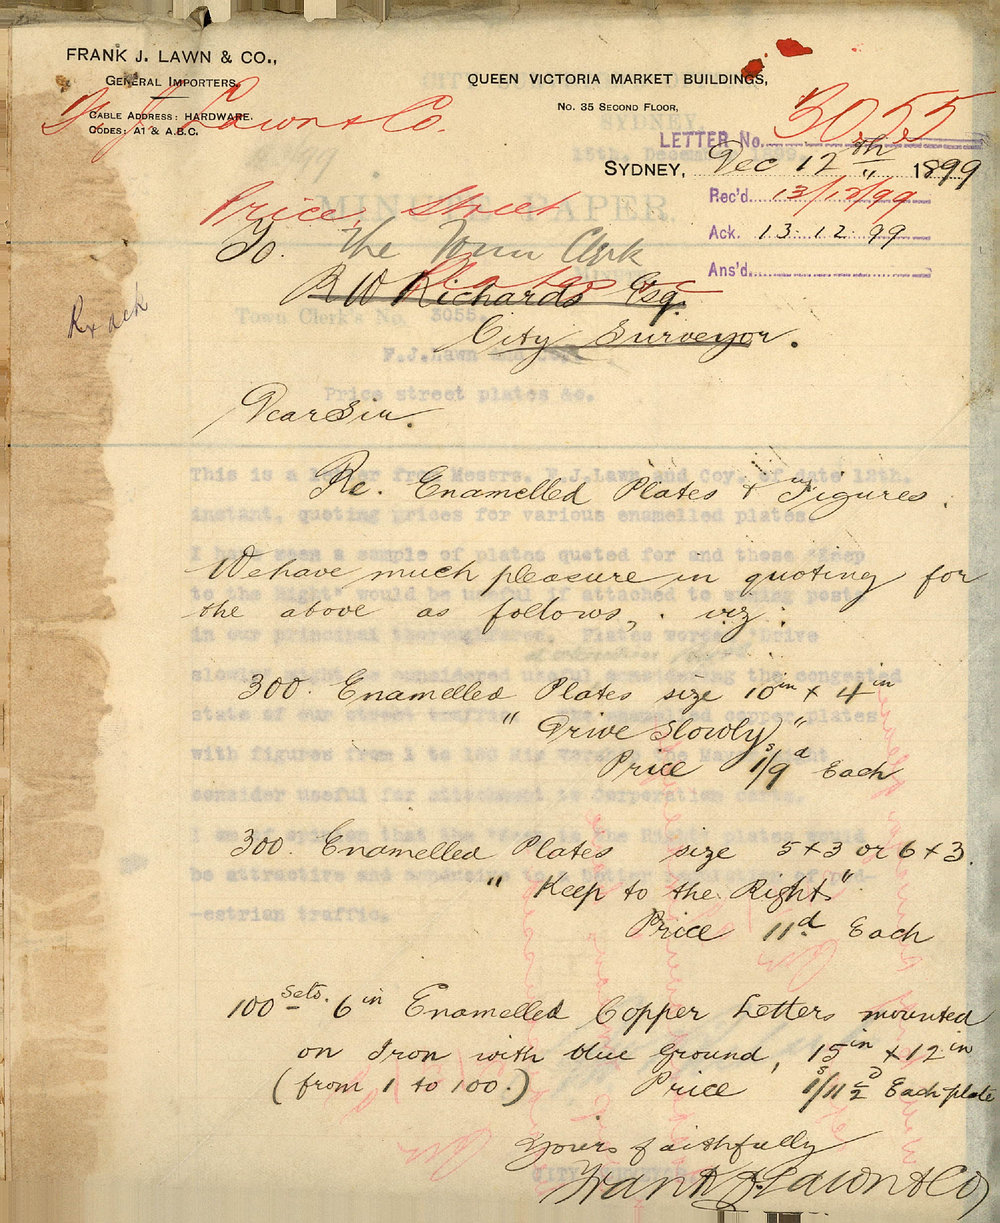 FRANK J. LAWN & CO.,
GENERAL IMPORTERS.
CABLE ADDRESS: HARDWARE.
CODES: A1 & A.B.C.
F. J. Lawn & Co.
QUEEN VICTORIA MARKET BUILDINGS,
No. 35 SECOND FLOOR,
LETTER No. 3055
SYDNEY, Dec 12th 1899
Rec'd. 13/12/99
Ack. 13.12.99
Ans'd.
Price Street
Plates &c
To. The Town Clerk
R W Richards Esq.
City Surveyor.
Rx ack
MINUTE PAPER.
SYDNEY,
15th. December
Town Clerk's No. 3055.
F.J.Lawn and Co.
Price street plates &c.
Dear Sir.
Re. Enamelled Plates & Figures.
We have much pleasure in quoting for
the above as follows, . viz :
300. Enamelled Plates size 10in x 4in
"Drive Slowly"
Price 1s/9d Each
300. Enamelled Plates size 5 x 3 or 6 x 3.
"Keep to the Right".
Price 11d Each
100 Sets. 6in Enamelled Copper Letters mounted
on Iron with blue ground, 15in x 12in
(from 1 to 100.) Price 1s/11½D Each plate
Yours faithfully
Frank J. Lawn & Co
This is a letter from Messrs. F.J.Lawn and Coy. of date 12th.
instant, quoting prices for various enamelled plates.
I have seen a sample of plates quoted for and those "Keep
to the Right" would be useful if attached to awning posts
in our principal thoroughfares. Plates worded "Drive
slowly" might be considered useful considering the congested
state of our street traffic. The enamelled copper plates
with figures from 1 to 100 His Worship the Mayor might
consider useful for attachment to Corporation carts.
I am of opinion that the "Keep to the Right" plates would
be attractive and conducive to a better regulation of ped-
-estrian traffic.
CITY SURVEYOR.